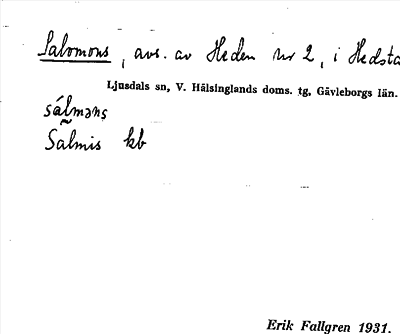 Salomons, avs. av Heden nr 2, i Hedsta
Ljusdals sn, V. Hälsinglands doms. tg, Gävleborgs län.
sálməns
Salmis kb
Erik Fallgren 1931.